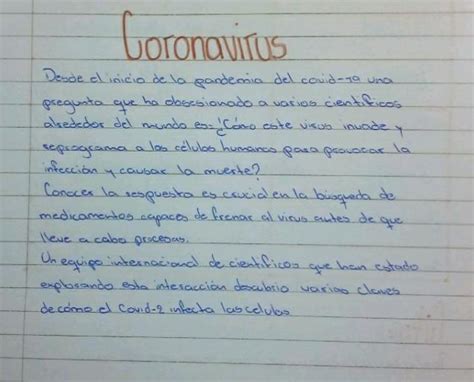 Coronavirus
Desde el inicio de la pandemia del covid-19 una
pregunta que ha obsesionado a varios científicos
alrededor del mundo es: ¿Cómo este virus invade y
reprograma a las células humanas para provocar la
infección y causar la muerte?
Conocer la respuesta es crucial en la búsqueda de
medicamentos capaces de frenar al virus antes de que
lleve a cabo procesos.
Un equipo internacional de científicos que han estado
explorando esta interacción descubrio varias claves
de cómo el Covid-2 infecta las celulas